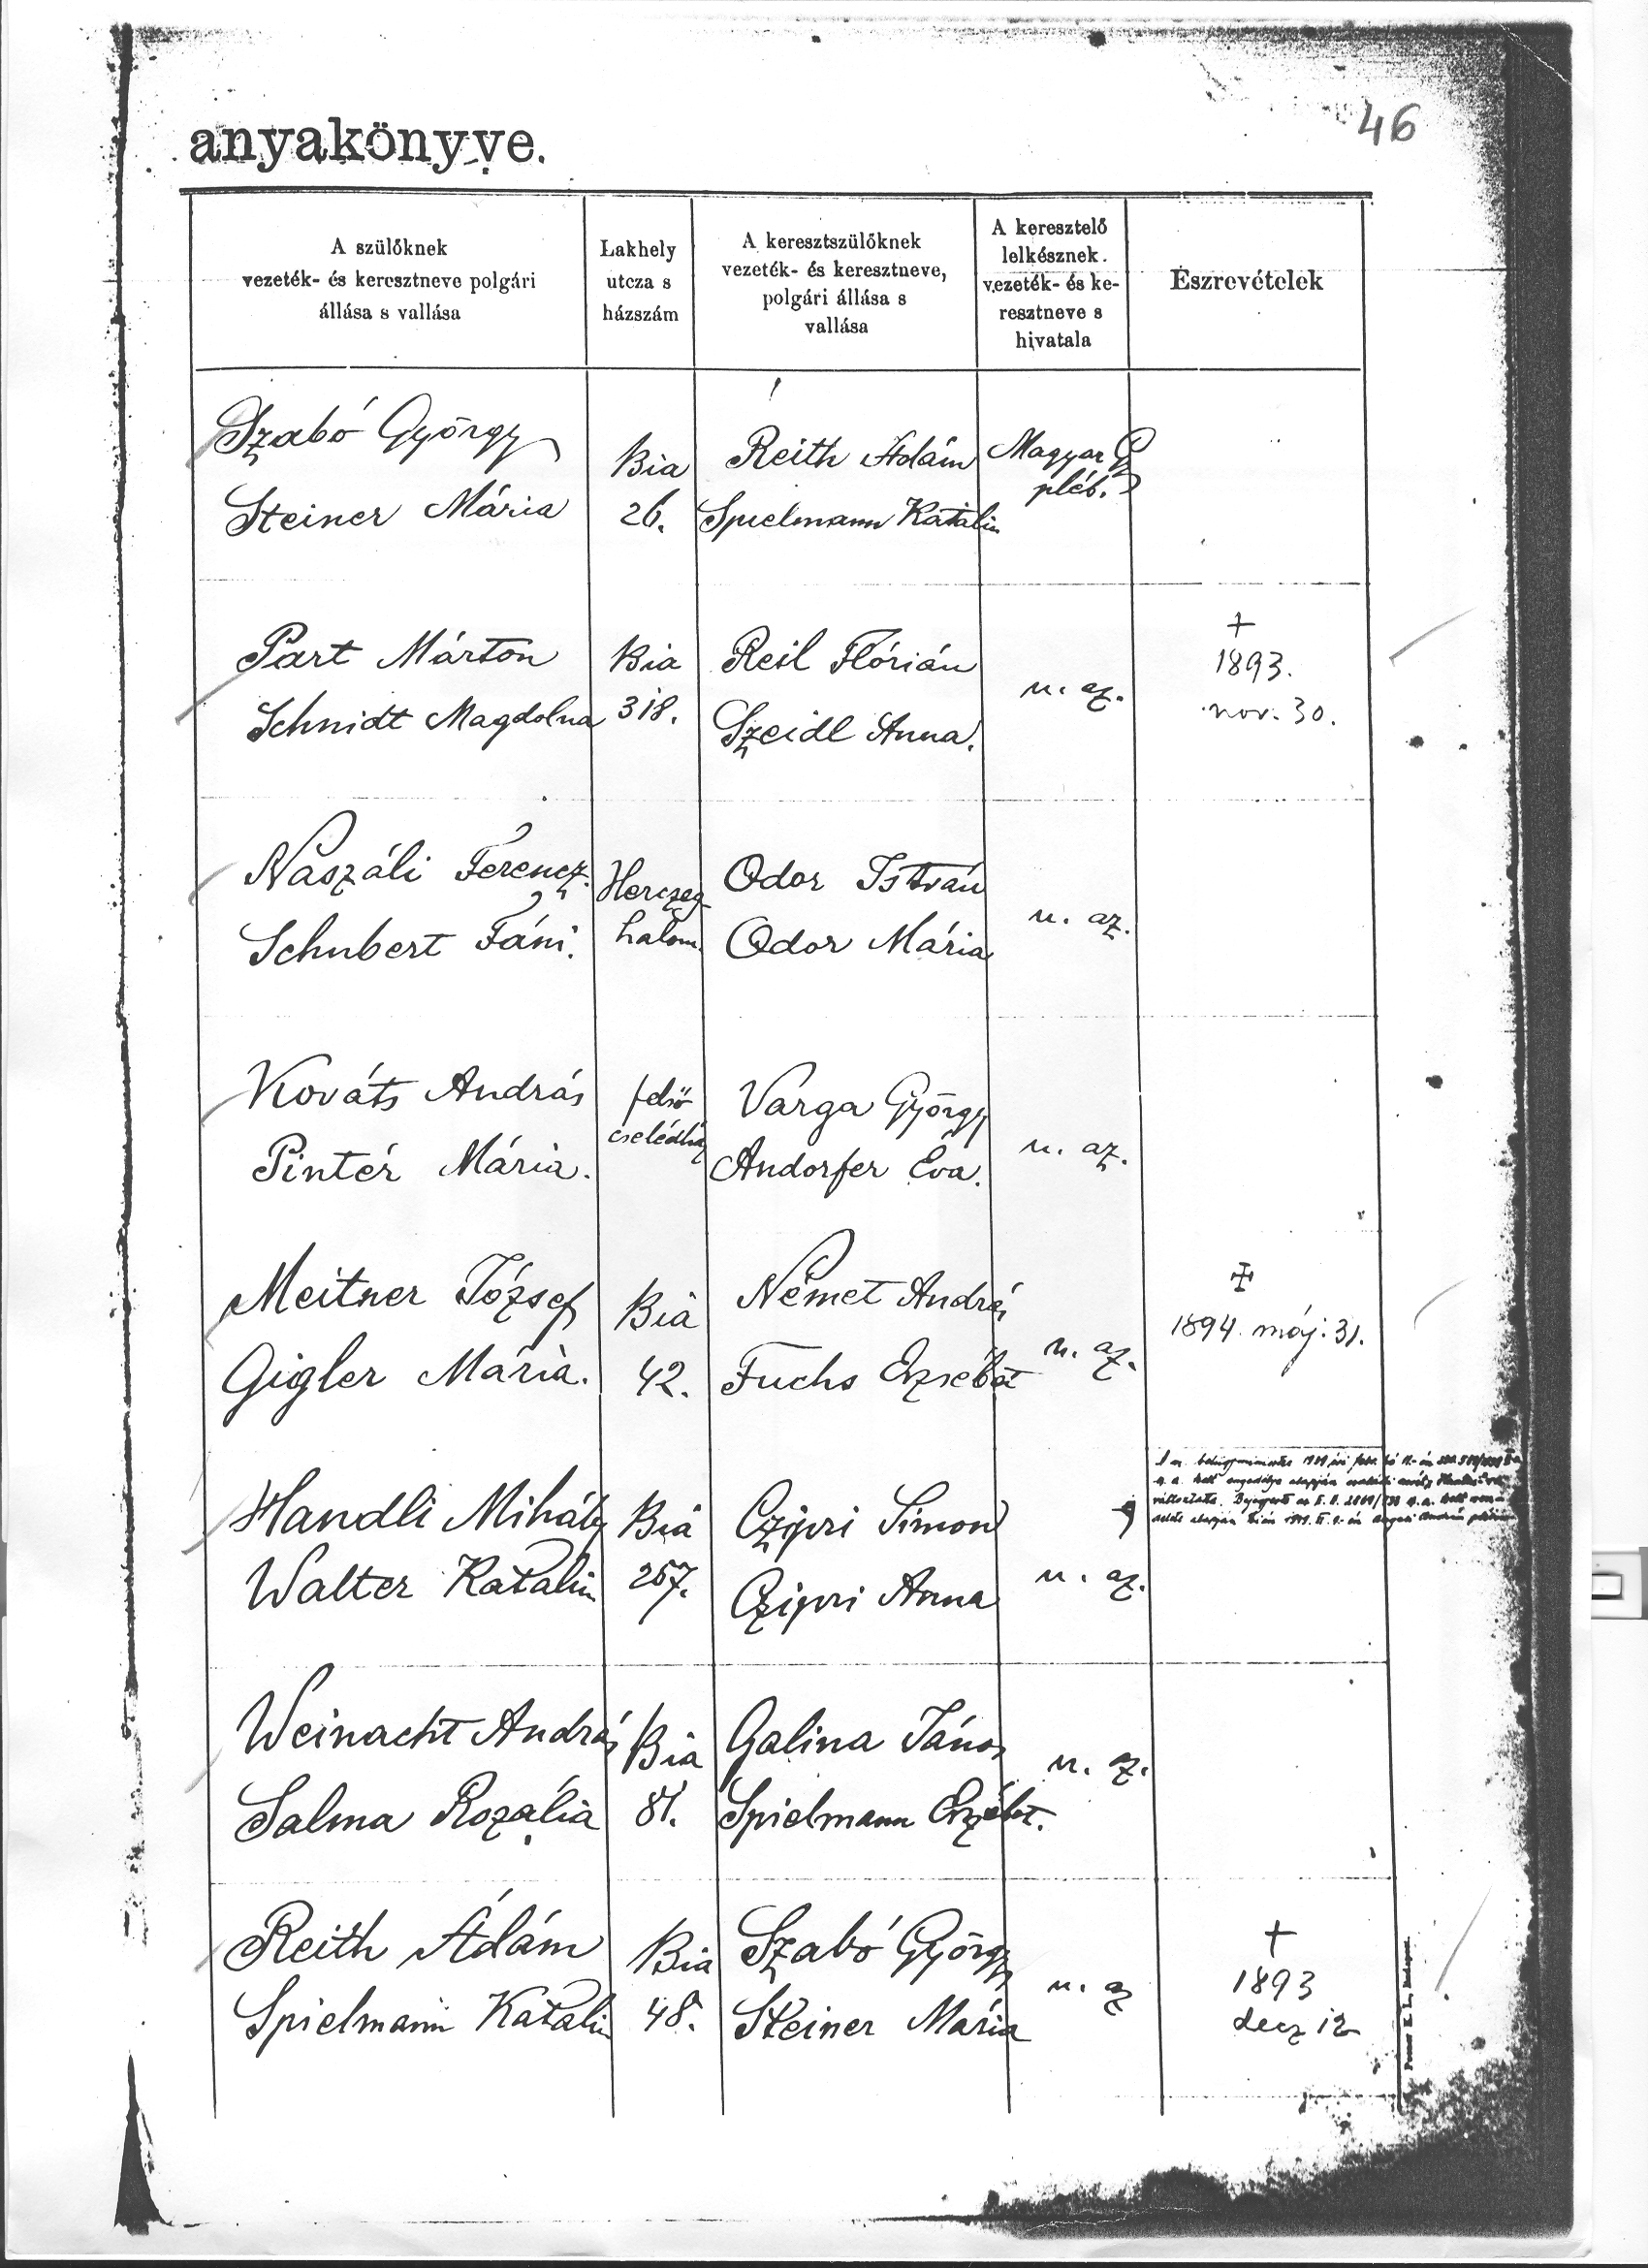 46
anyakönyve.
A szülőknek
vezeték- és keresztneve polgári
állása s vallása
Lakhely
utcza s
házszám
A keresztszülőknek
vezeték- és keresztneve,
polgári állása s
vallása
A keresztelő
lelkésznek
vezeték- és ke-
resztneve s
hivatala
Észrevételek
Szabó György
Steiner Mária
Bia
26.
Reith Ádám
Spielmann Katalin
Magyar Gy
pléb.
Part Márton
Schmidt Magdolna
Bia
318.
Reil Flórián
Szeidl Anna.
u. az.
+
1893.
nov. 30.
Naszáli Ferencz.
Schubert Fáni.
Herczeg-
halom.
Odor István
Odor Mária
u. az.
Kováts András
Pintér Mária.
felső
cselédház
Varga György
Andorfer Éva.
u. az.
Meitner József
Gigler Mária.
Bia
42.
Német András
Fuchs Erzsébet
u. az.
1894. máj. 31.
Handli Mihály
Walter Katalin
Bia
257.
Czigri Simon
Czigri Anna
u. az.
Weinacht András
Salma Rozália
Bia
81.
Galina János
Spielmann Erzsébet.
u. az.
Reith Ádám
Spielmann Katalin
Bia
48.
Szabó György
Steiner Mária
u. az
+
1893
decz 12